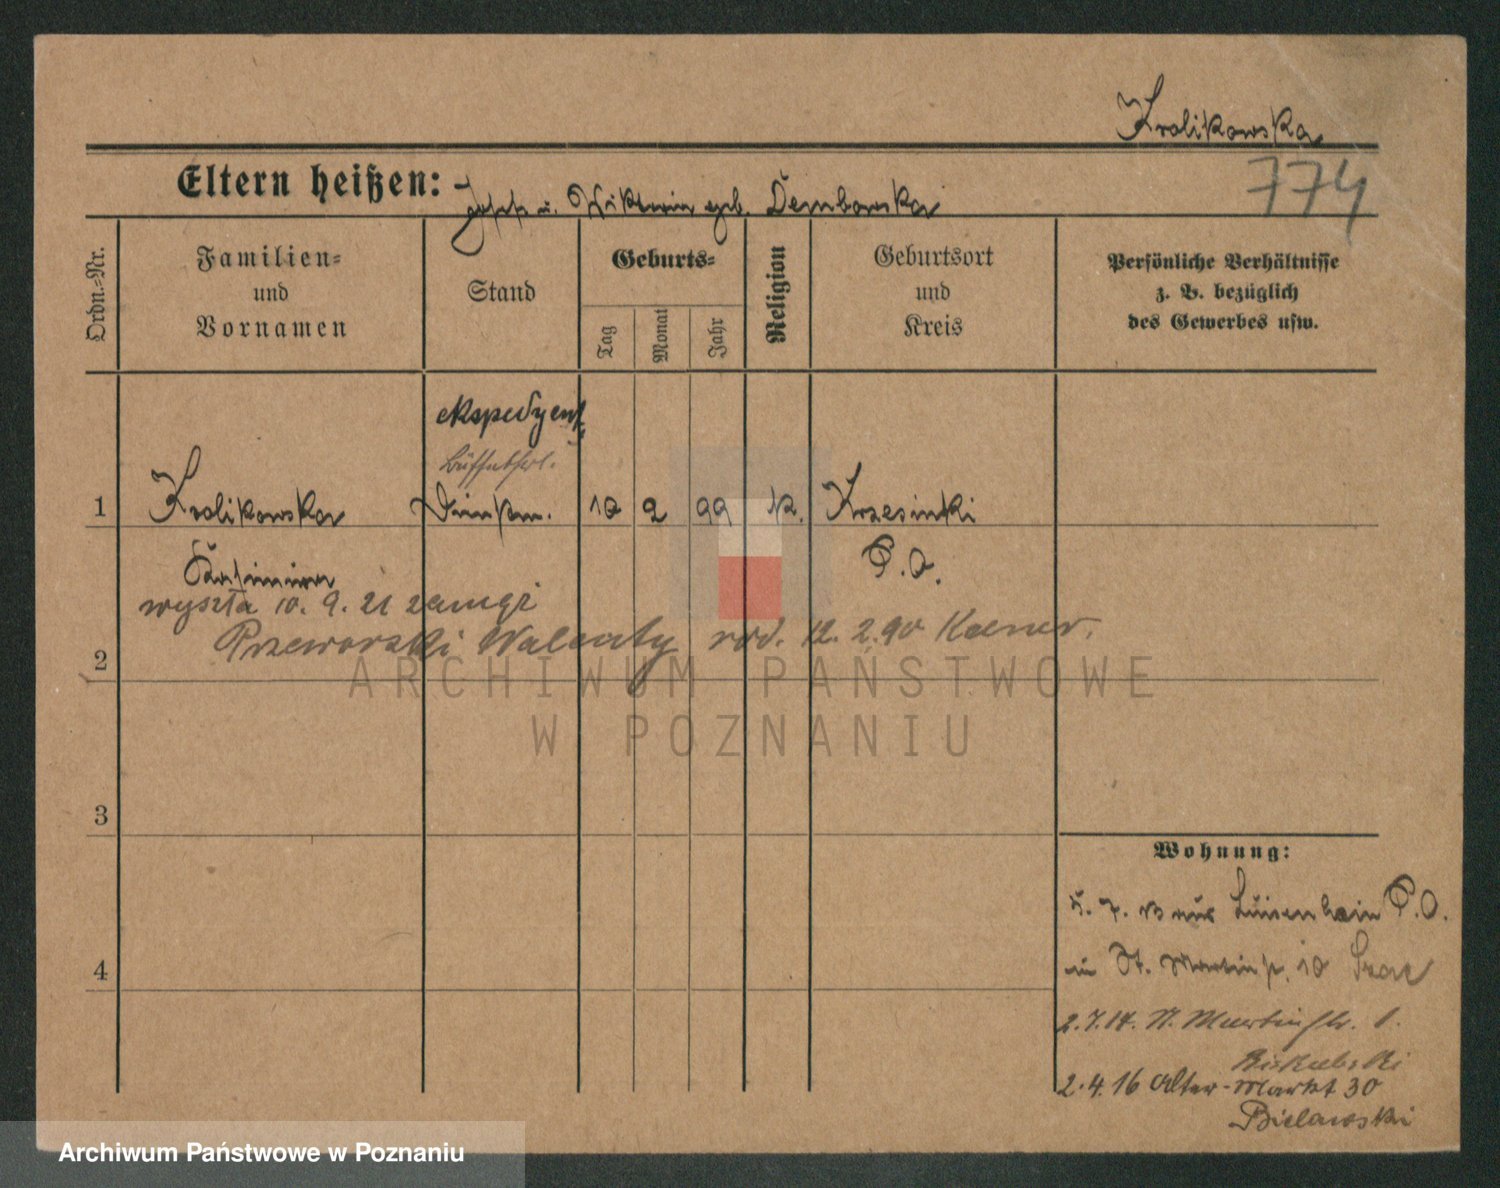 Krolikowska
774
Eltern heißen: Josef u. Wiktoria geb. Dembowska
Ordn.-Nr.
Familien-
und
Vornamen
Stand
Geburts-
Tag
Monat
Jahr
Religion
Geburtsort
und
Kreis
Persönliche Verhältnisse
z. B. bezüglich
des Gewerbes usw.
ekspedyent.
Büffetfrl.
1 Krolikowska Dienstm. 10 2 99 k. Krzesinki
Kasimira P.O.
wyszła 10. 9. 21 zamąż
Przeworski Walenty rod. 12. 2. 90
2
3
4
Wohnung:
5. 7. 13 aus Luisenhain P.O.
in St. Martinstr. 10
2. 7. 14. St. Martinstr.
2. 4. 16 Alter-Markt 30
Bielawski
ARCHIWUM PAŃSTWOWE
W POZNANIU
Archiwum Państwowe w Poznaniu